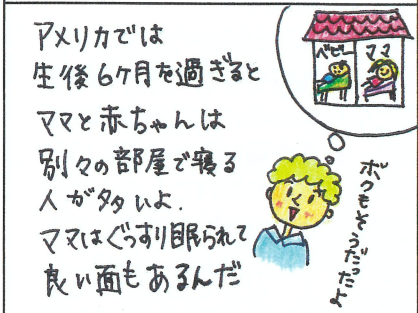 アメリカでは
生後6ケ月を過ぎると
ママと赤ちゃんは
別々の部屋で寝る
人が多いよ.
ママはぐっすり眠られて
良い面もあるんだ
ベビー
ママ
ボクもそうだったよ